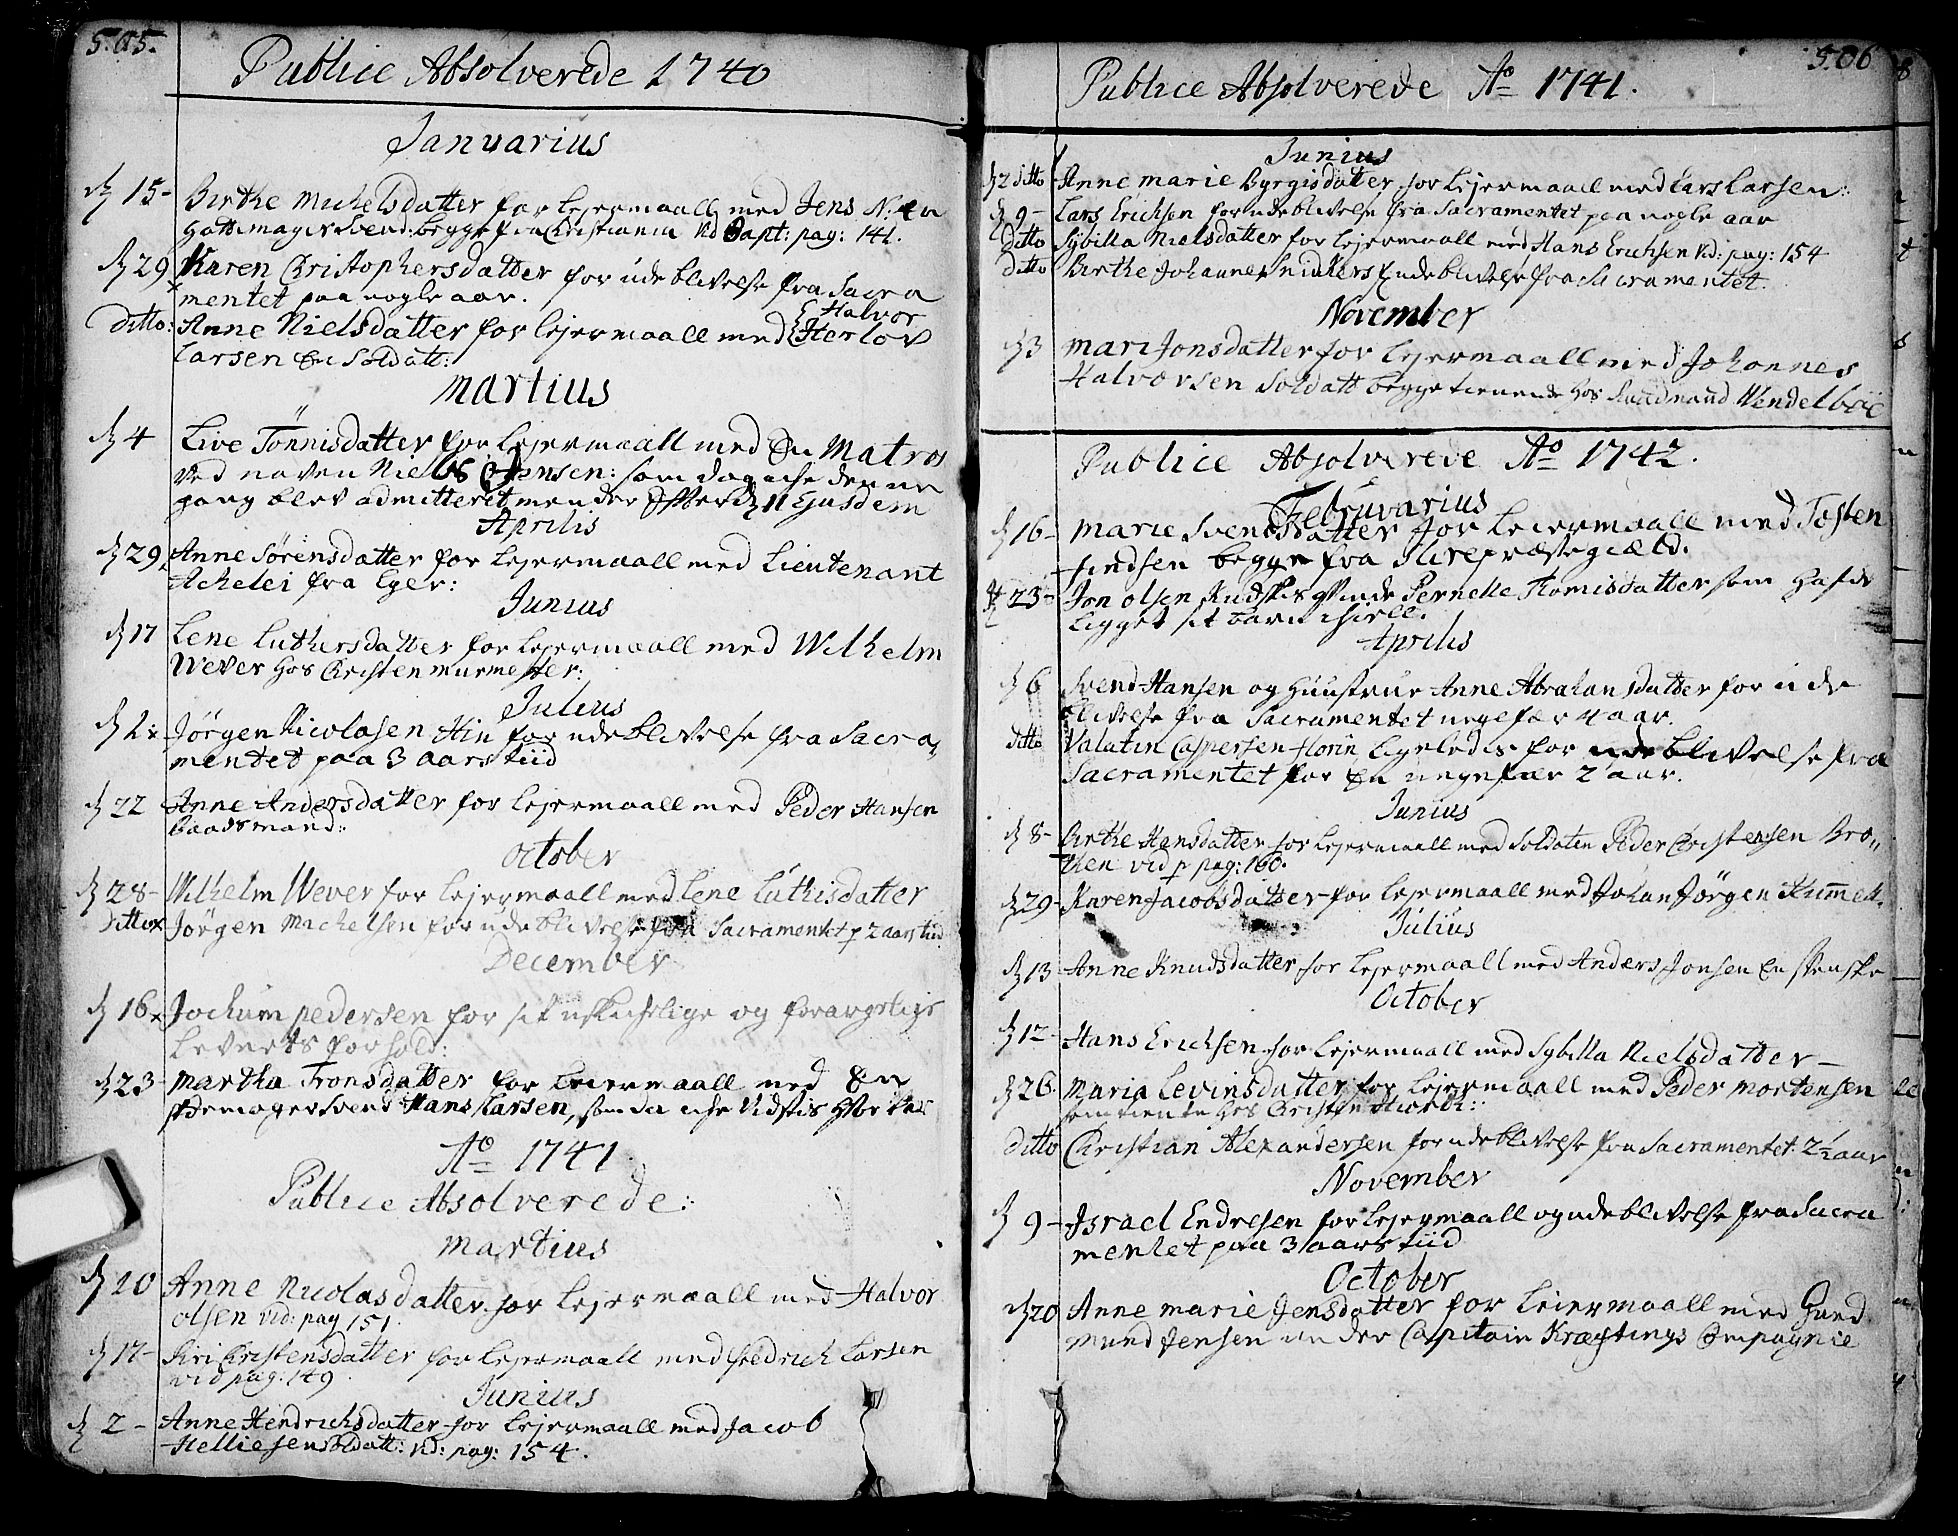 505.
Publice Absolverede 1740
Januarius
15- Birthe Michelsdatter for Lejermaall med Jens
Hattemager Svend: begge fra Christiania vid Bapt: pag: 141.
29 Karen Christophersdatter for udeblivelse fra Sacra
mentet paa nogle aar.
Halvor
ditto: Anne Nielsdatter for Lejermaall med Herlov
Larsen En Soldatt:
Martius
4 Live Tönnisdatter for Lejermaall med En Matros
ved naven Niels Jensen: som dog iche denne
gang blev admitteret men der Efter 11 Ejusdem
Aprilis
29 Anne Sörensdatter for Lejermaall med Lieutenant
Achelei fra Eger:
Junius
17 Lene Luthersdatter for Lejermaall med Wilhelm
Wever hos Christen Murmester:
Julius
Jörgen Nicolasen Hin for udeblivelse fra Sacra„
mentet paa 3 aars tiid
22 Anne Andersdatter for Lejermaall med Peder Hansen
Baadsmand:
October
28- Wilhelm Wever for Lejermaall med Lene Luthisdatter
Ditto Jörgen Michelsen for udeblivelse fra Sacramentet p 2 aars tiid
December
16 Jochum pedersen for sit uskichelige og forargelige
Levnets forhold:
23 Martha Tronsdatter for Leiermaall med En
Hans Larsen, som da iche vidstis hvor var
Ao 1741
Publice Absolverede:
Martius
10 Anne Nicolasdatter for Lejermaall med Halvor
olsen vid: pag 151.
17- Siri Christensdatter for Lejermaall med fredrich Larsen
vid pag: 149.
Junius
2 - Anne Hendrichsdatter for Lejermaall med Jacob
Helliesen Soldatt: vid: pag: 154.
506
Publice Absolverede Ao 1741.
Junius
2 ditto Anne Marie Byrgisdatter for Lejermaall med Lars Larsen:
9- Lars Erichsen for udeblivelse fra Sacramentet paa nogle aar
ditto Sybilla Nielsdatter for Lejermaall med Hans Erichsen vid: pag: 154
ditto Birthe Johannes Snidkers f udeblivelse fra Sacramentet.
November
3 Mari Jonsdatter for Lejermaall med Johannes
Halvorsen Soldatt begge tienende hos Wendelboe
Publice Absolverede Ao 1742.
Februvarius
16- Marie Svensdatter for Leiermaall med Tosten
findsen begge fra præstegiæld.
23- Jon olsen qvinde Pernelle Thomisdatter som hafde
ligget sit barn ihiell.
Aprilis
6 Svend Hansen og huustrue Anne Abrahamsdatter for ude
blivelse fra Sacramentet ungefær 4 aar.
ditto Valatin Caspersen florin, ligeledis for udeblivelse fra
Sacramentet for En ungefær 2 aar.
Junius
8- Birthe Hansdatter for Lejermaall med Soldaten Peder Christensen Bro„
then vid p pag: 160.
29- Karen Jacobsdatter for Lejermaall med Johan Jörgen Kimmell.
Julius
13 Anne Knudsdatter for Lejermaall med Anders Jonsen En svenske
October
12- Hans Erichsen for Lejermaall med Sybilla Nielsdatter -
26 Maria Levinsdatter for Lejermaall med Peder Mortensen
som tiente hos Christen
ditto Christian Alexandersen for udeblivelse fra Sacramentet: 2½ aar
November
9- Israel Endresen for Lejermaall og udeblivelse fra Sacra
mentet paa 3 aars tiid
October
20 Anne Marie Jensdatter for Leiermaall med Gund
mund Jensen under Capitain Kræftings Compagnie